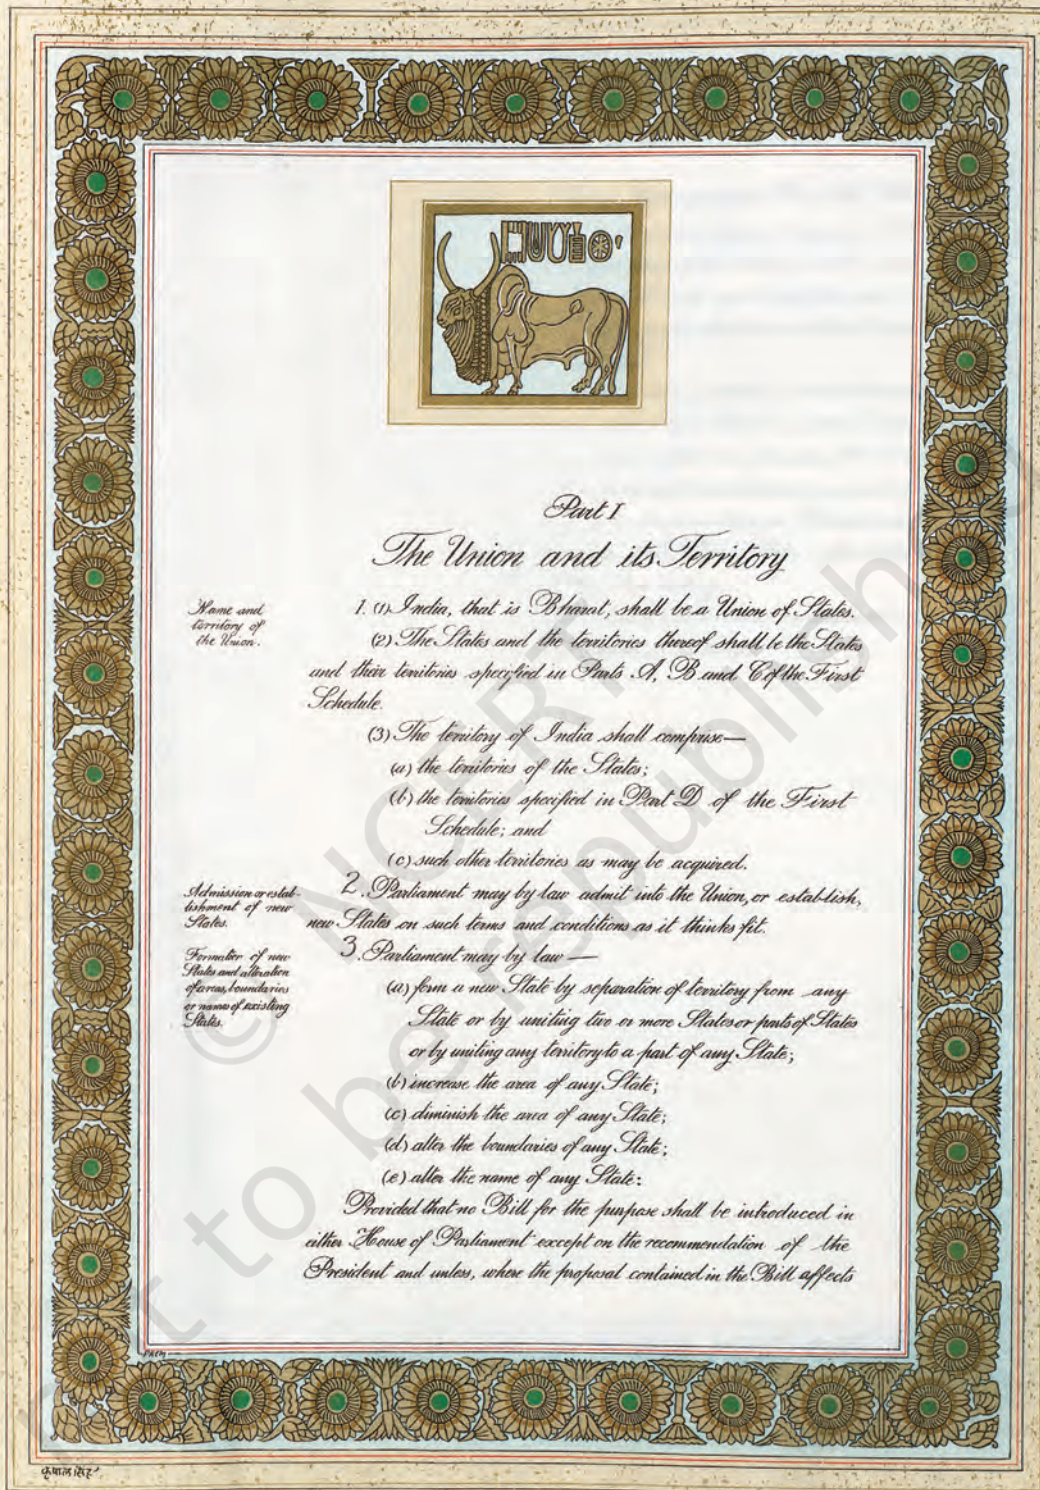 Part I
The Union and its Territory
Name and
territory of
the Union.
1. (1) India, that is Bharat, shall be a Union of States.
(2) The States and the territories thereof shall be the States
and their territories specified in Parts A, B and C of the First
Schedule.
(3) The territory of India shall comprise—
(a) the territories of the States;
(b) the territories specified in Part D of the First
Schedule; and
(c) such other territories as may be acquired.
Admission or estab-
lishment of new
States.
2. Parliament may by law admit into the Union, or establish,
new States on such terms and conditions as it thinks fit.
Formation of new
States and alteration
of areas, boundaries
or names of existing
States.
3. Parliament may by law —
(a) form a new State by separation of territory from any
State or by uniting two or more States or parts of States
or by uniting any territory to a part of any State;
(b) increase the area of any State;
(c) diminish the area of any State;
(d) alter the boundaries of any State;
(e) alter the name of any State:
Provided that no Bill for the purpose shall be introduced in
either House of Parliament except on the recommendation of the
President and unless, where the proposal contained in the Bill affects
© NCERT
to be republish
कृपाल सिंह